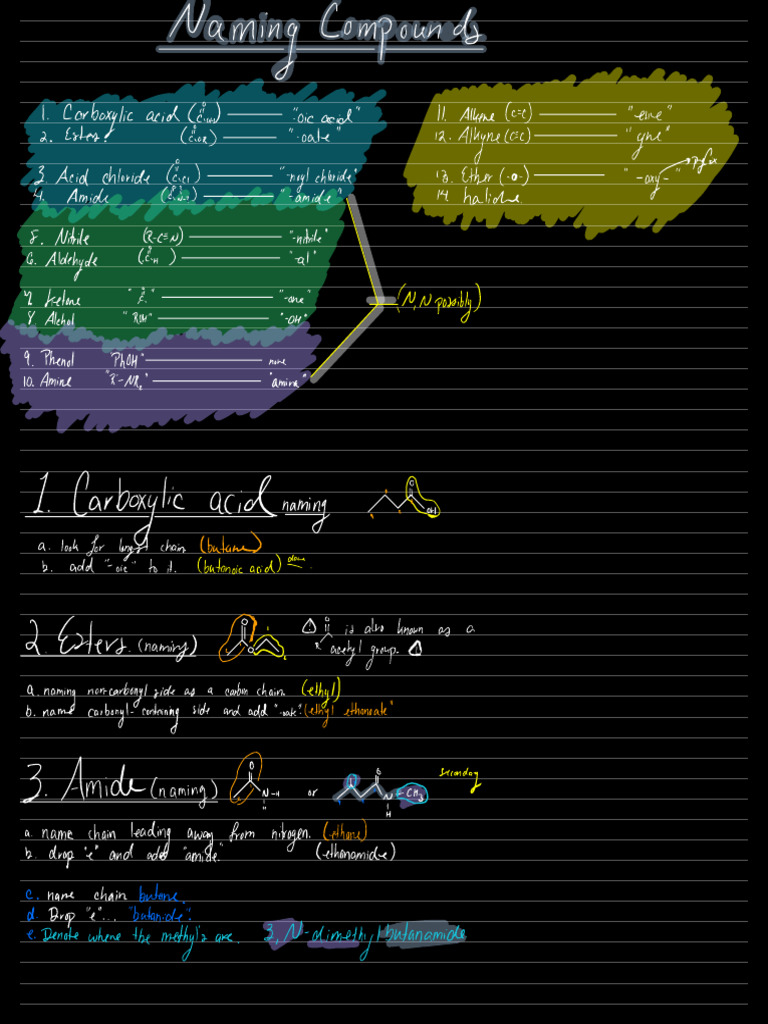 Naming Compounds
1. Carboxylic acid (C-OH) "-oic acid"
2. Ester (C-OR) "-oate"
3. Acid chloride (C-Cl) "-noyl chloride"
4. Amide "-amide"
8. Nitrile (R-C≡N) "-nitrile"
6. Aldehyde (C-H) "-al"
7. Ketone "C" "-one"
8. Alcohol "ROH" "-OH"
9. Phenol "PhOH" none
10. Amine "R-NR₂" "amine"
(N, N possibly)
11. Alkene (C=C) "-ene"
12. Alkyne (C≡C) "yne"
13. Ether (-O-) "-oxy-" prefix
14. halide
1. Carboxylic acid naming
O
OH
a. look for longest chain (butane)
b. add "-oic" to it. (butanoic acid) done.
2. Esters. (naming)
O
O
is also known as a
acetyl group.
a. naming non-carbonyl side as a carbon chain. (ethyl)
b. name carbonyl-containing side and add "-oate". (ethyl ethanoate"
3. Amide (naming)
O
N-H
H
or
O
N-CH₃
H
secondary
a. name chain leading away from nitrogen. (ethane)
b. drop "e" and add "amide." (ethanamide)
c. name chain butane.
d. Drop "e"... "butanide".
e. Denote where the methyl's are. 3, N-dimethylbutanamide